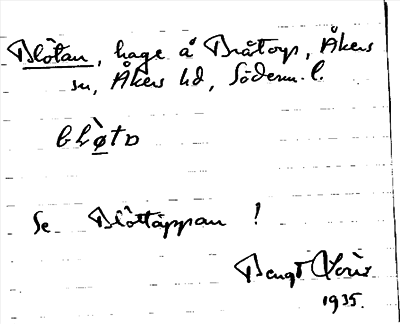 Blötan, hage å Bråtorp, Åkers
sn, Åkers hd, Söderm. l.
Se Blöttäppan !
Bengt
1935.